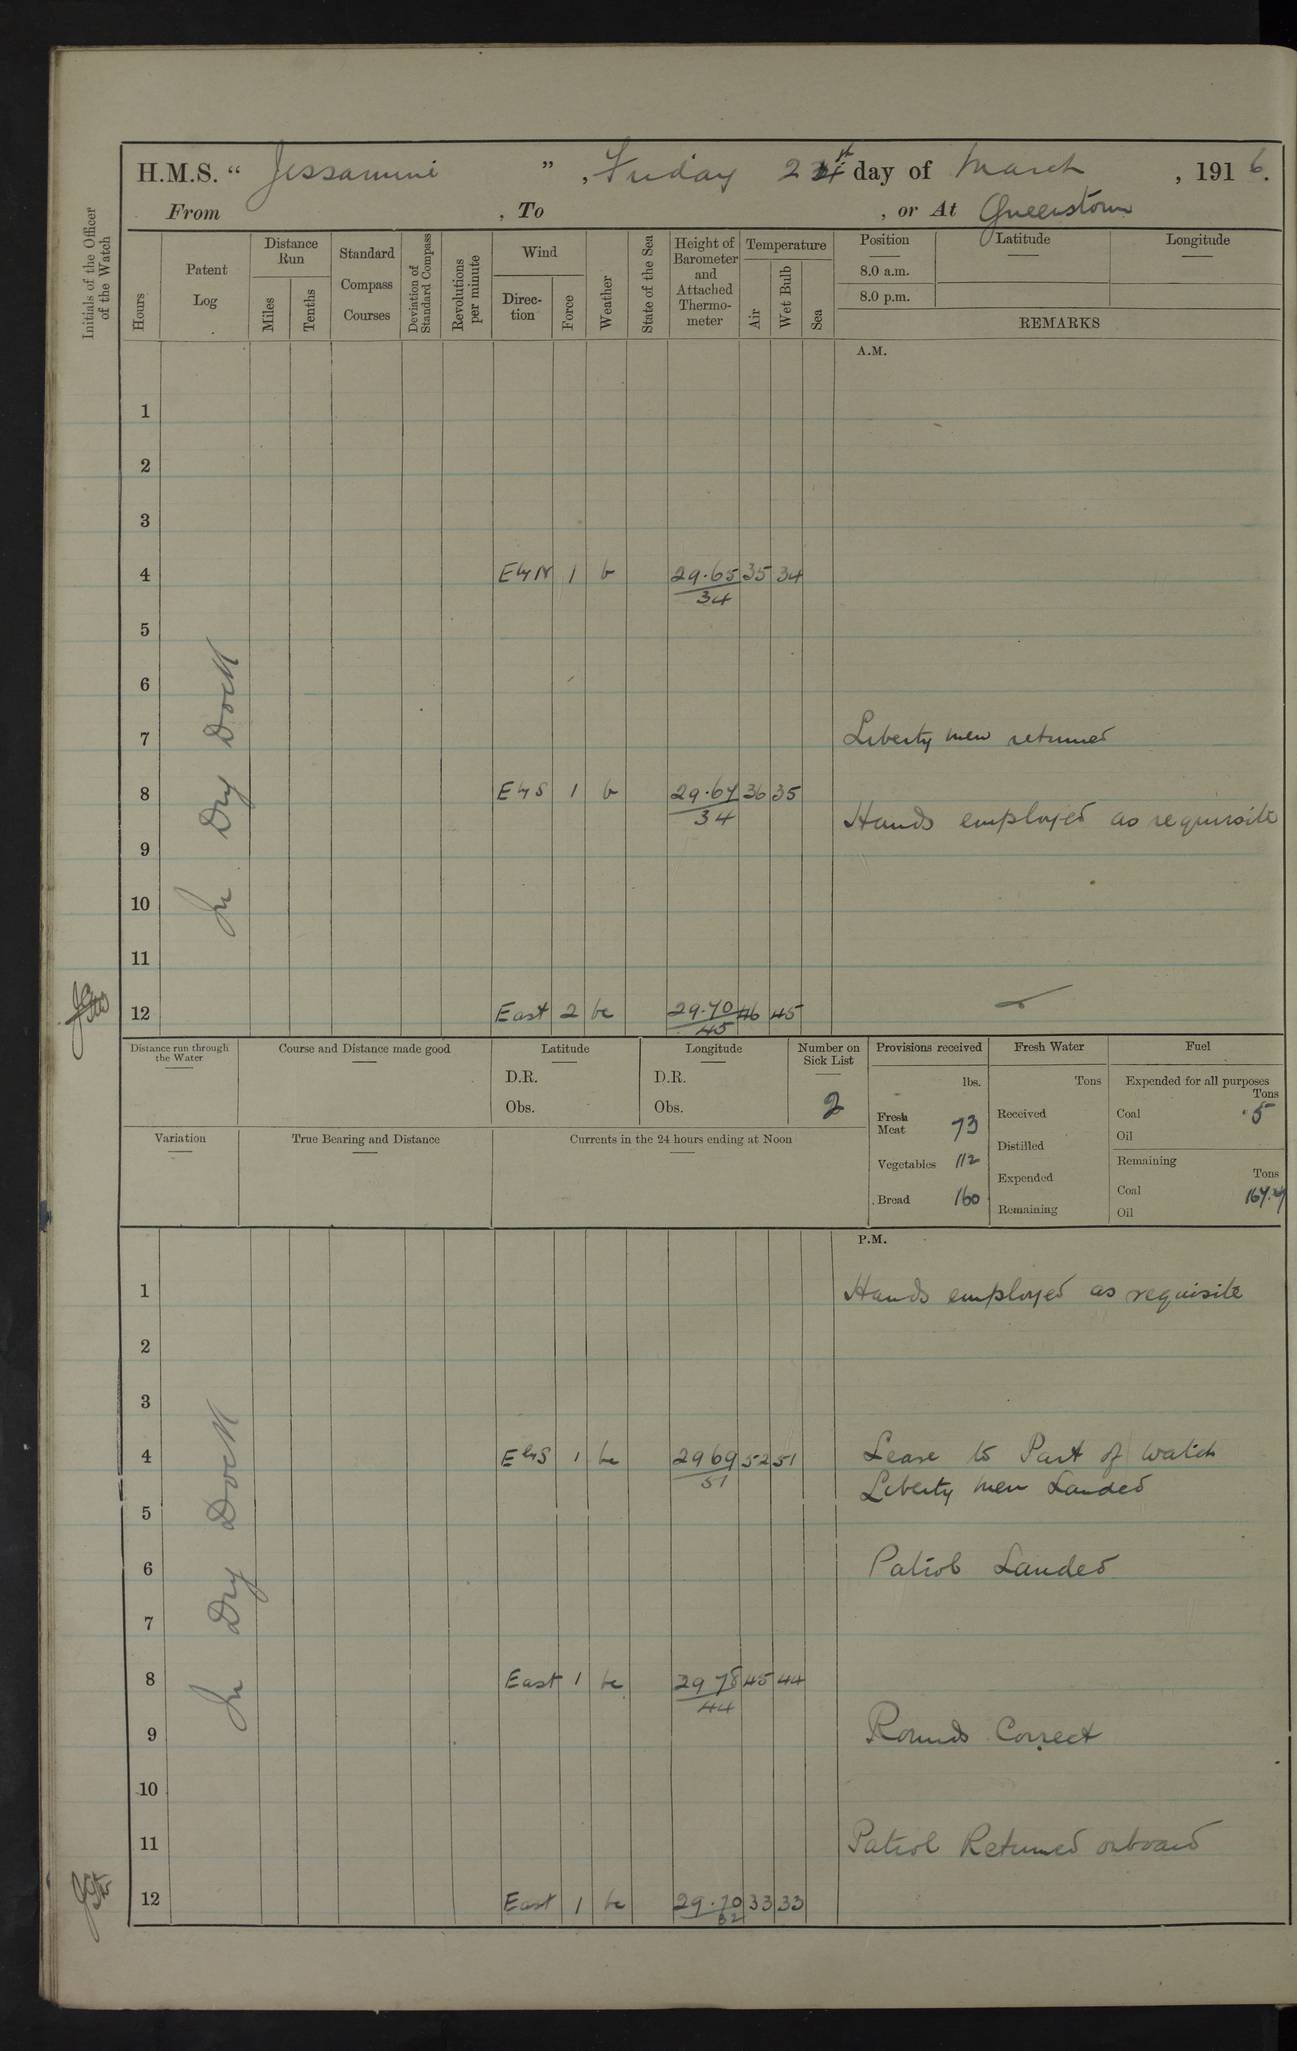 H.M.S. " Jessamine ", Friday 24th day of March, 1916.
From , To , or At Queenstown
Initials of the Officer of the Watch
Hours
Patent Log
Distance Run
Miles
Tenths
Standard Compass Courses
Deviation of Standard Compass
Revolutions per minute
Wind
Direc-tion
Force
Weather
State of the Sea
Height of Barometer and Attached Thermo-meter
Temperature
Air
Wet Bulb
Sea
Position Latitude Longitude
8.0 a.m.
8.0 p.m.
REMARKS
A.M.
In Dry Dock
1
2
3
4 E by N 1 b 29.65 35 34
34
5
6
7 Liberty men returned
8 E by S 1 b 29.67 36 35
34
Hands employed as requisite
9
10
11
12 East 2 bc 29.70 46 45
45
Distance run through the Water
Course and Distance made good
Latitude
D.R.
Obs.
Longitude
D.R.
Obs.
Number on Sick List
2
Provisions received
lbs.
Fresh Meat 73
Vegetables 112
Bread 160
Fresh Water
Tons
Received
Distilled
Expended
Remaining
Fuel
Expended for all purposes
Tons
Coal .5
Oil
Remaining
Tons
Coal
Oil
Variation
True Bearing and Distance
Currents in the 24 hours ending at Noon
P.M.
In Dry Dock
1 Hands employed as requisite
2
3
4 E by S 1 bc 29 69 52 51 Leave to Part of Watch
51
Liberty men Landed
5
6 Patrol Landed
7
8 East 1 bc 29 78 45 44
44
9 Rounds Correct
10
11 Patrol Returned onboard
12 East 1 bc 29.70 33 33
32